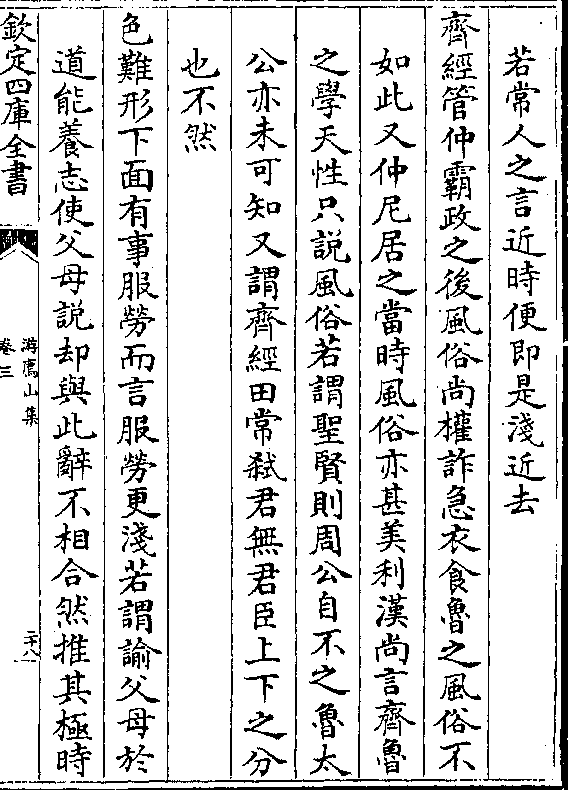 若常人之言近時便即是淺近去
齊經管仲霸政之後風俗尚權詐急衣食魯之風俗不
如此又仲尼居之當時風俗亦甚美利漢尚言齊魯
之學天性只說風俗若謂聖賢則周公自不之魯太
公亦未可知又謂齊經田常弒君無君臣上下之分
也不然
色難形下面有事服勞而言服勞更淺若謂諭父母於
道能養志使父母說却與此辭不相合然推其極時
欽定四庫全書
游廌山集
卷三
二十八